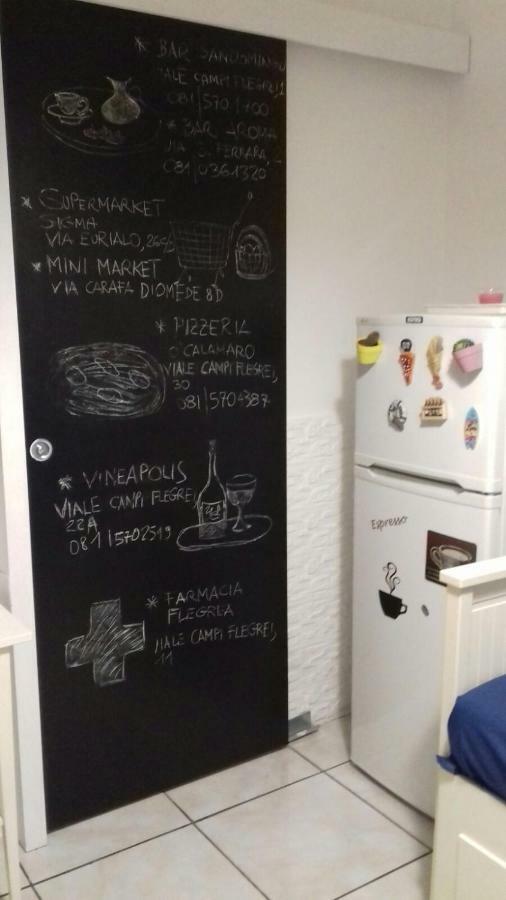 * BAR SANDOMINGO
VIALE CAMPI FLEGREI, 2
081/570.1700
* BAR AROMA
VIA G. FERRARA,
081/0361320
* SUPERMARKET
SIGMA
VIA EURIALO,
* MINI MARKET
VIA CARAFA DIOMEDE 8D
* PIZZERIA
O' CALAMARO
VIALE CAMPI FLEGREI,
30
081/5704387
* VINEAPOLIS
VIALE CAMPI FLEGREI,
22A
081/5702519
* FARMACIA
FLEGREA
VIALE CAMPI FLEGREI,
11
Espresso